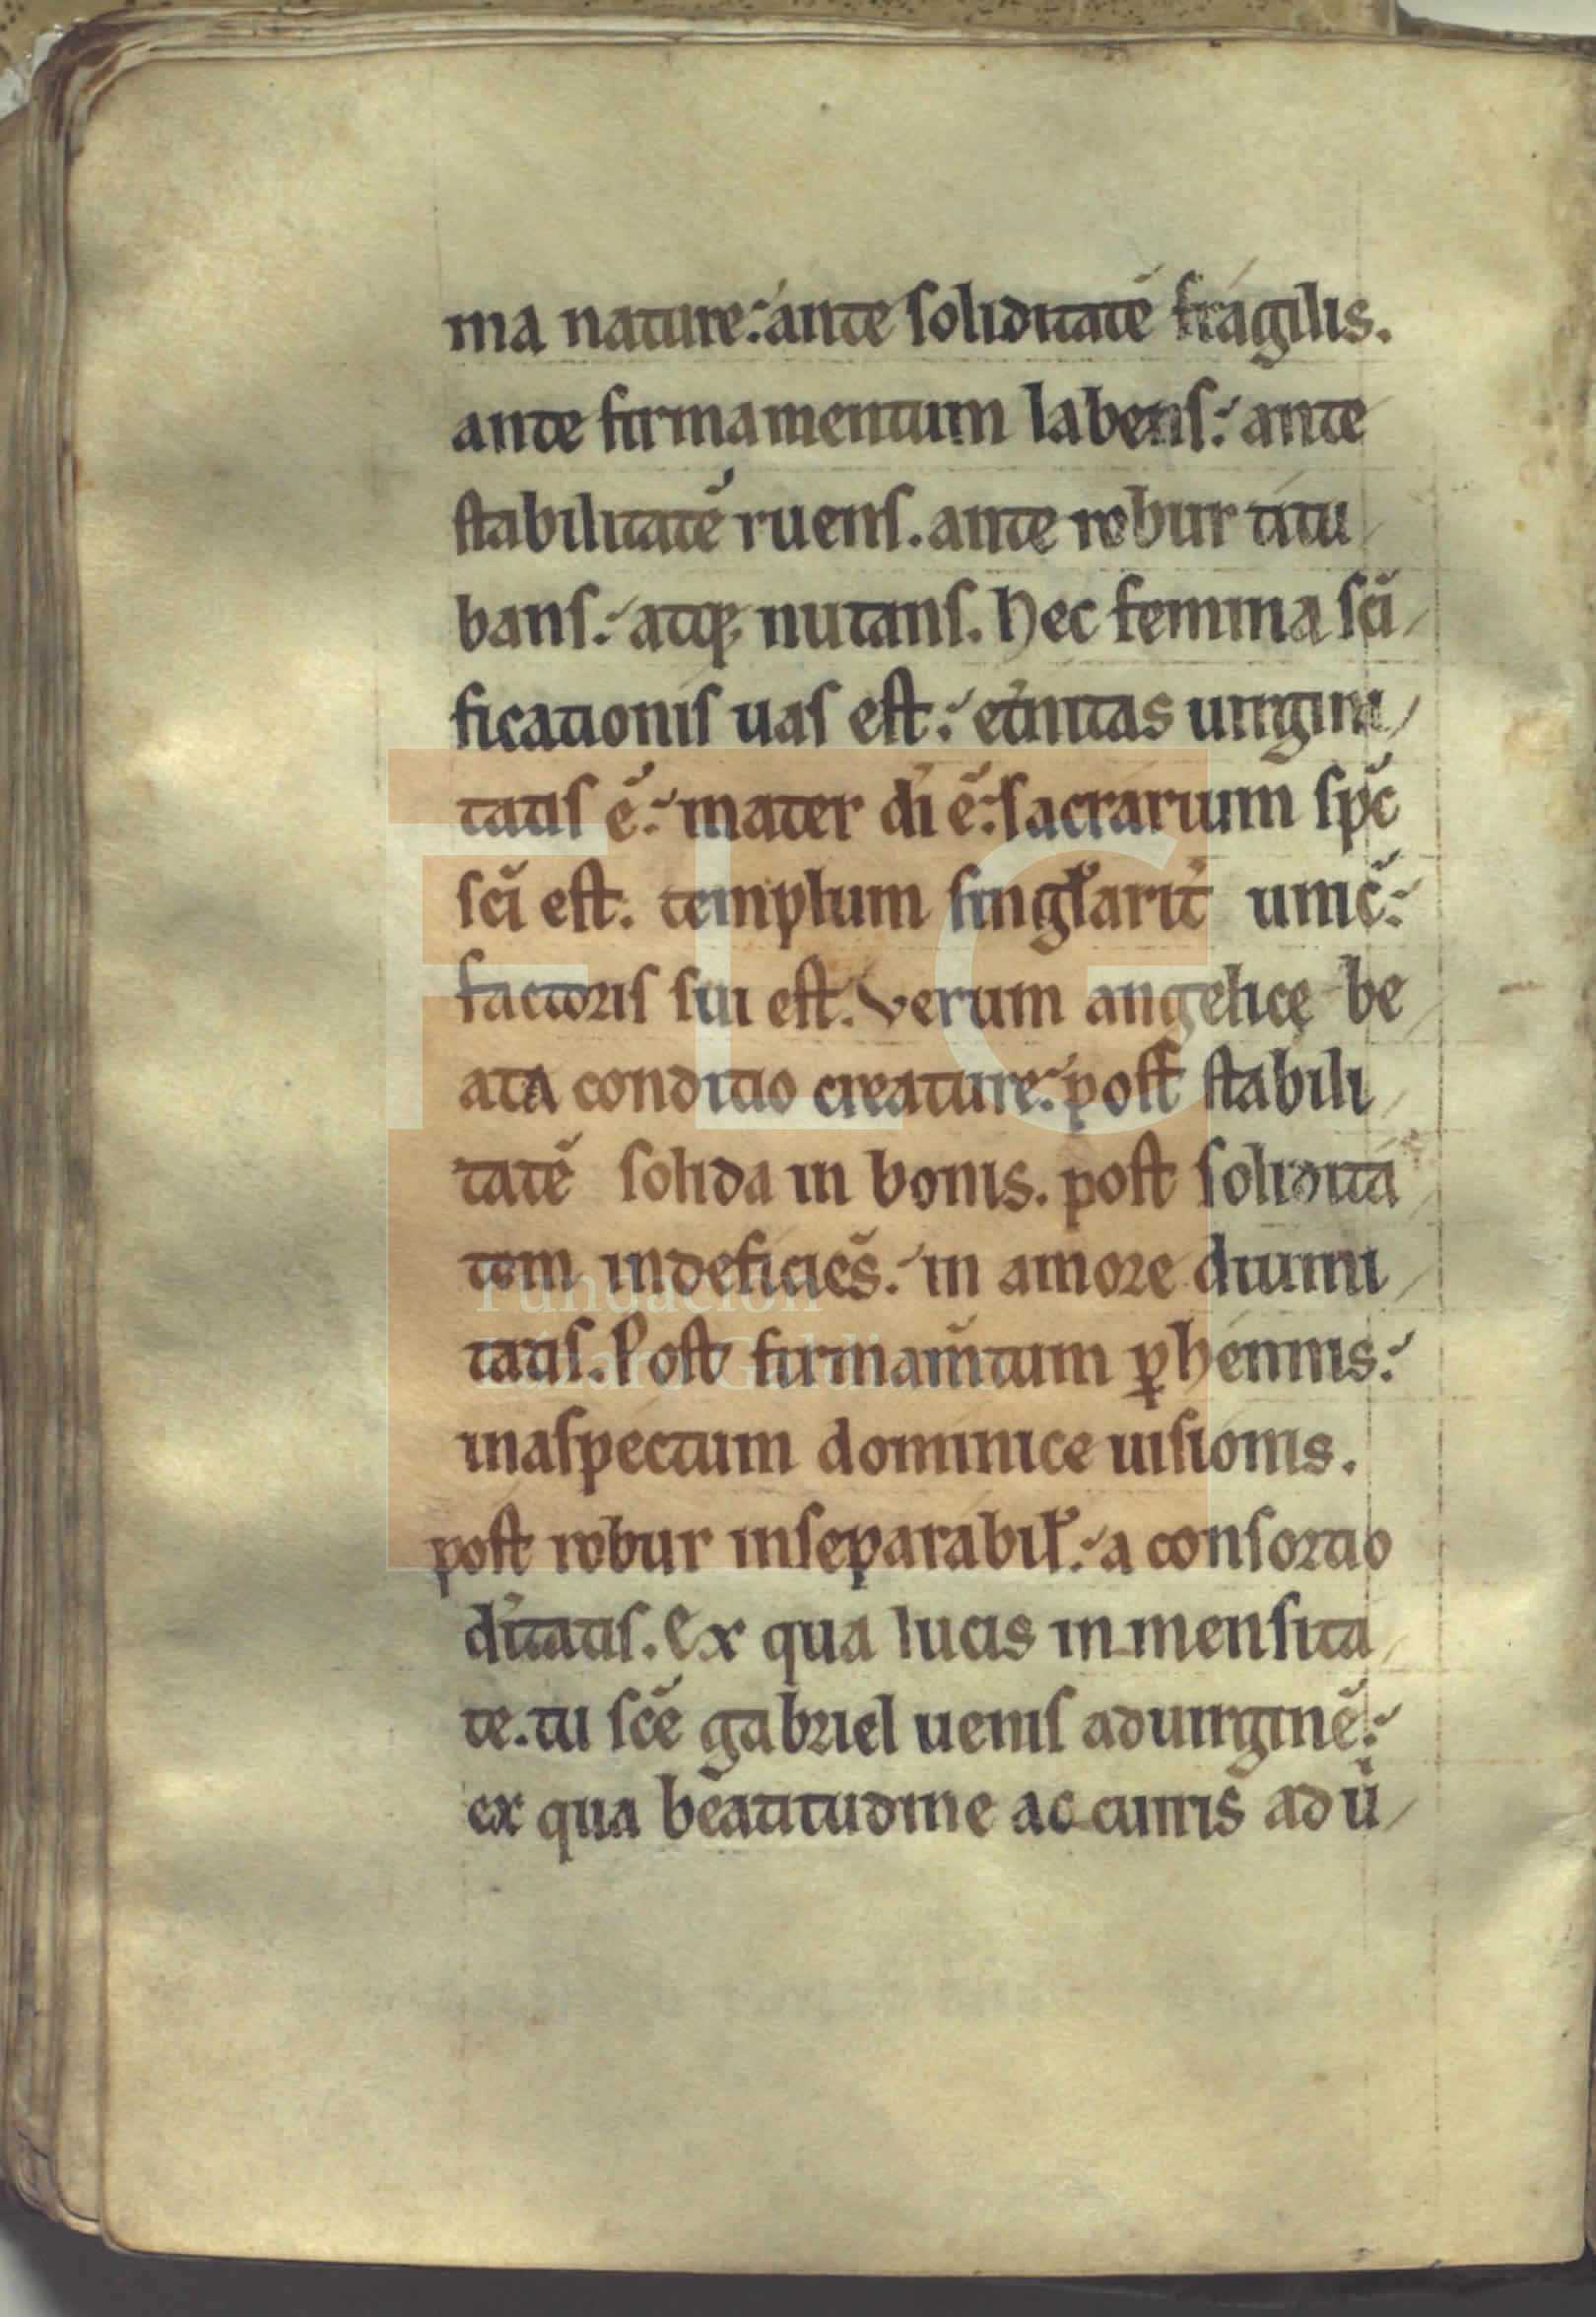 ma nature: ante soliditatē fragilis.
ante firmamentum labens: ante
stabilitatē ruens. ante robur titu
bans: atq; nutans. hec femina sc̄i
ficationis uas est: et̓nitas uirgini
tatis ē: mater d̓i ē: sacrarium sp̄c
sc̄i est. templum singl̓arit̓ unic̄:
factoris sui est. Verum angelicę be
ata conditio creature: post stabili
tatē solida in bonis. post solidita
tem indeficiēs: in amore diuini
tatis. Post firmam̄tum ꝑhennis:
inaspectum dominice uisionis.
post robur inseparabil̓: a consortio
d̓itatis. Ex qua lucis inmensita
te. tu sc̄e gabriel uenis aduirginē:
ex qua beatitudine accurris ad ū
FLG
Fundación